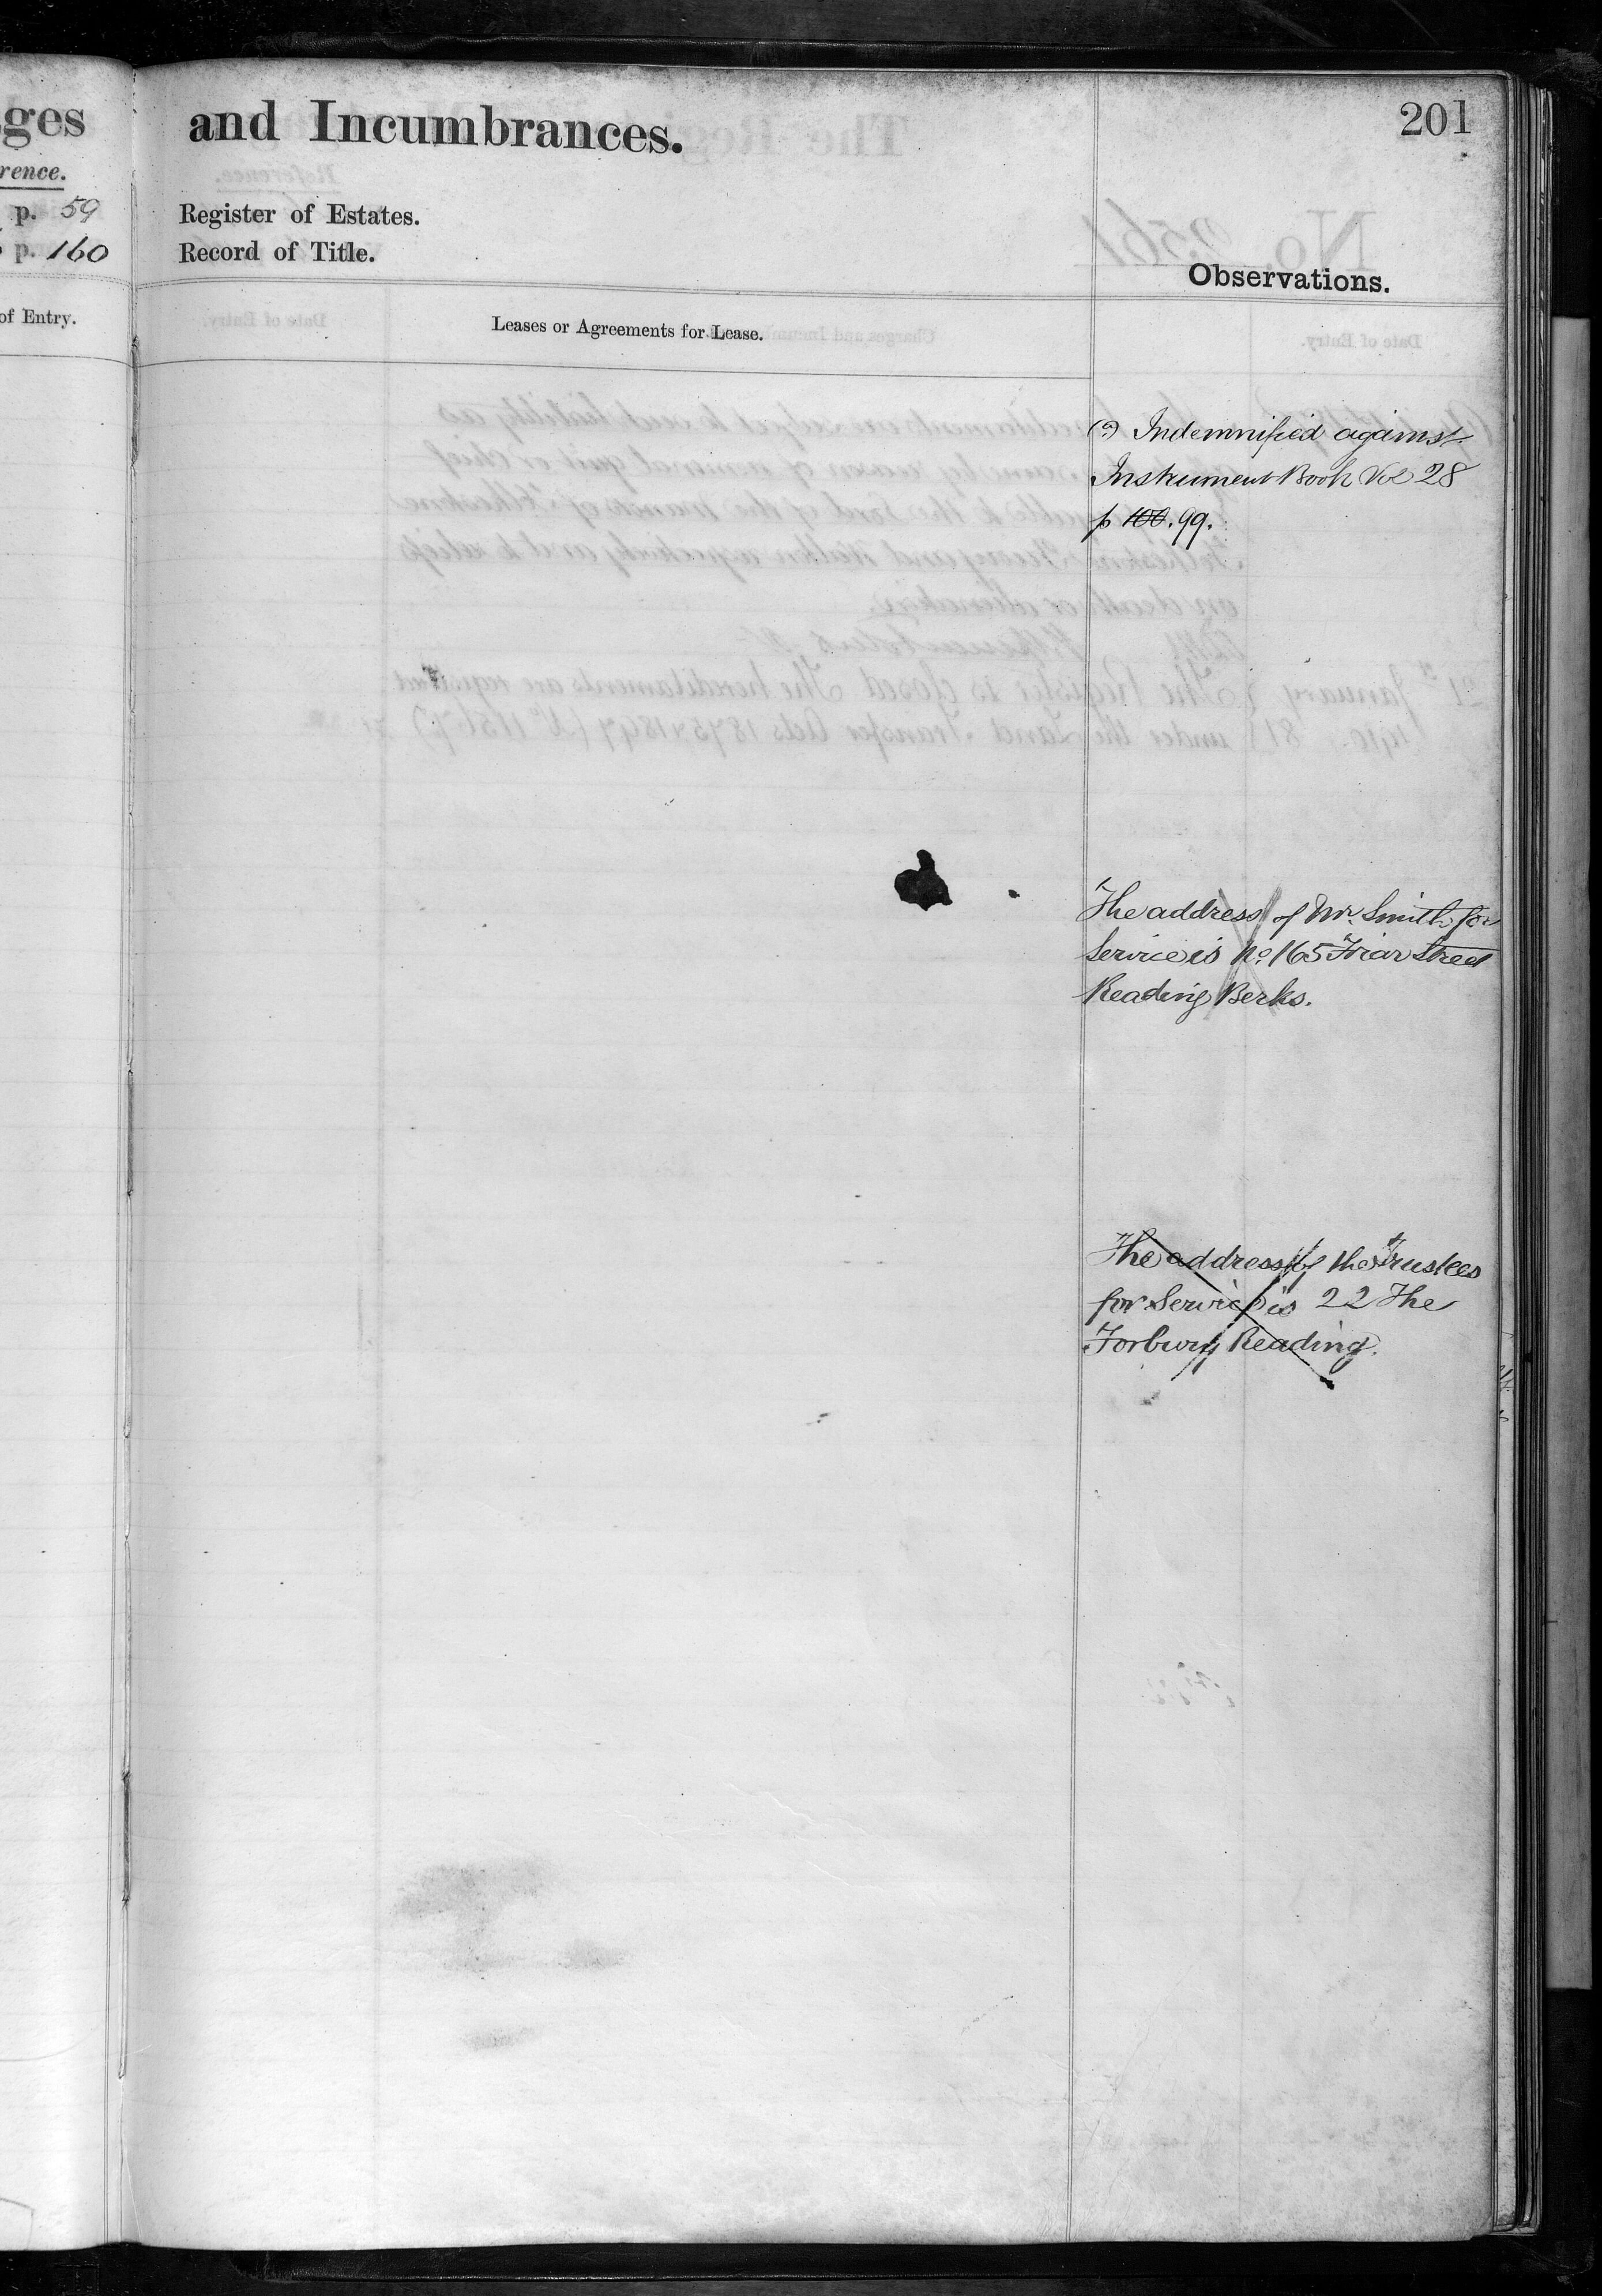 ges
rence.
p. 59
p. 160
of Entry.
and Incumbrances.
201
Register of Estates.
Record of Title.
Observations.
Leases or Agreements for Lease.
(a) Indemnified against
Instrument Book Vol 28
p 100. 99.
The address of Mr. Smith for
Service is No. 165 Friar Street
Reading Berks.
The address of the Trustees
for Service is 22 The
Forbury Reading.